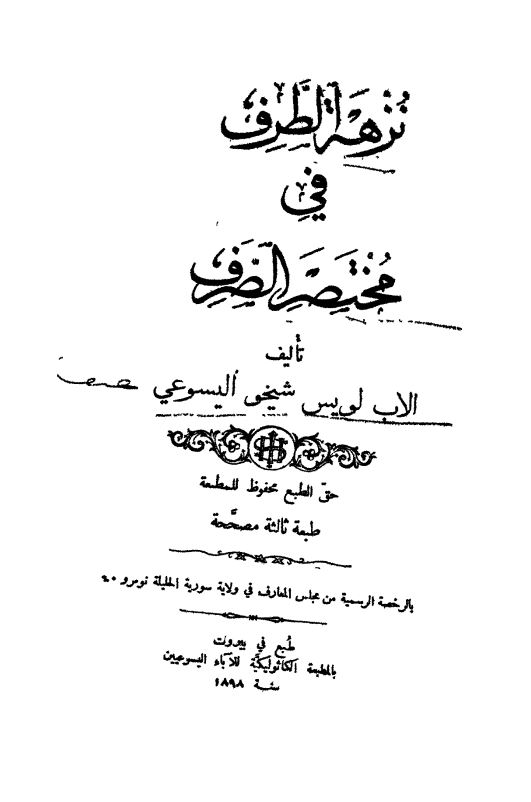 نُزْهَة الطَّرِف
فِي
مُخْتَصَر الصَّرِف
تأليف
الاب لويس شيخو اليسوعي
حقّ الطبع محفوظ للمطبعة
طبعة ثالثة مصحَّحة
بالرخصة الرسمية من مجلس المعارف في ولاية سورية الجليلة نومرو
طُبع في بيروت
بالمطبعة الكاثوليكيَّة للآباء اليسوعيين
سنة ١٨٩٨